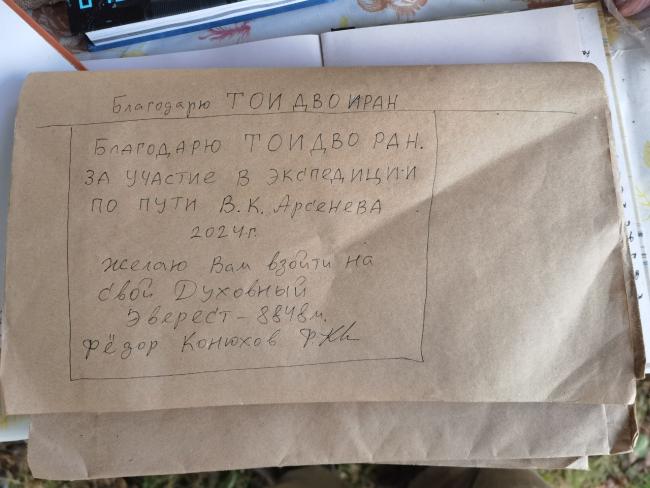 Благодарю ТОИ ДВО ИРАН
БЛАГОДАРЮ ТОИ ДВО РАН.
ЗА УЧАСТИЕ В ЭКСПЕДИЦИИ
ПО ПУТИ В.К. АРСЕНЕВА
2024г.
Желаю Вам взойти на
свой Духовный
Эверест - 8848м.
Фёдор Конюхов